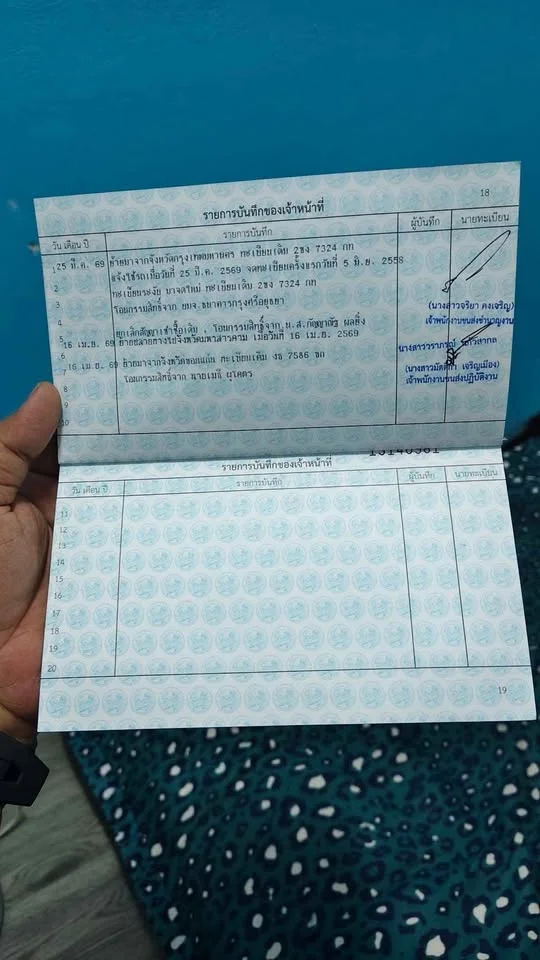 18
รายการบันทึกของเจ้าหน้าที่
วัน เดือน ปี รายการบันทึก ผู้บันทึก นายทะเบียน
1 25 มี.ค. 69 ย้ายมาจากจังหวัดกรุงเทพมหานคร ทะเบียนเดิม 2ขง 7324 กท
2 แจ้งใช้รถเมื่อวันที่ 25 มี.ค. 2569 จดทะเบียนครั้งแรกวันที่ 5 มิ.ย. 2558
3 ทะเบียนระงับ มาจดใหม่ ทะเบียนเดิม 2ขง 7324 กท
โอนกรรมสิทธิ์จาก ธนาคารกรุงศรีอยุธยา
(นางสาวจริยา คงเจริญ)
เจ้าพนักงานขนส่งชำนาญงาน
5 ยกเลิกสัญญาเช่าซื้อเดิม , โอนกรรมสิทธิ์จาก น.ส.
6 16 เม.ย. 69 ย้ายปลายทางไปจังหวัดมหาสารคาม เมื่อวันที่ 16 เม.ย. 2569
นางสาววราภรณ์
7 16 เม.ย. 69 ย้ายมาจากจังหวัดขอนแก่น ทะเบียนเดิม งจ 7586 ขก
(นางสาวมัตติกา เจริญเมือง)
8 โอนกรรมสิทธิ์จาก นายเมธี
เจ้าพนักงานขนส่งปฏิบัติงาน
9
10
รายการบันทึกของเจ้าหน้าที่
วัน เดือน ปี รายการบันทึก ผู้บันทึก นายทะเบียน
11
12
13
14
15
16
17
18
19
20
19